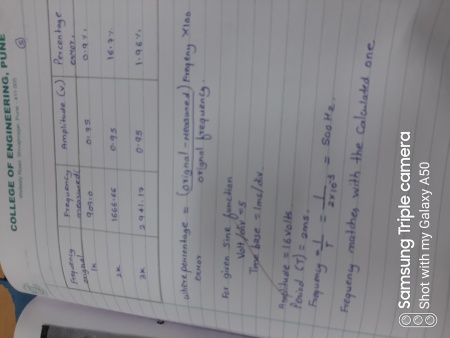 COLLEGE OF ENGINEERING, PUNE
Frequency original | Frequency measured | Amplitude (V) | Percentage error
1k | 909.0 | 0.99 | 0.9%
2k | 1666.66 | 0.95 | 16.7%
3k | 2941.17 | 0.95 | 1.96%
where percentage error = (original - measured) freqeny X100
original frequency.
For given sine function
Volt/div = 5
Time base = 1ms/div.
Amplitude = 16 volts
Period (T) = 2ms.
Frequency = 1/T = 1/2x10⁻³ = 500 Hz.
Frequency matches with the calculated one
Samsung Triple camera
Shot with my Galaxy A50